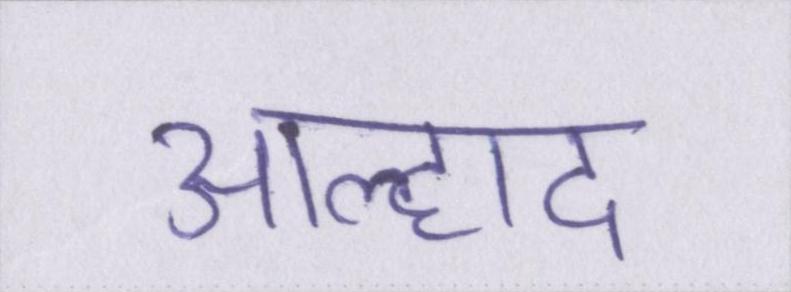 आल्हाद